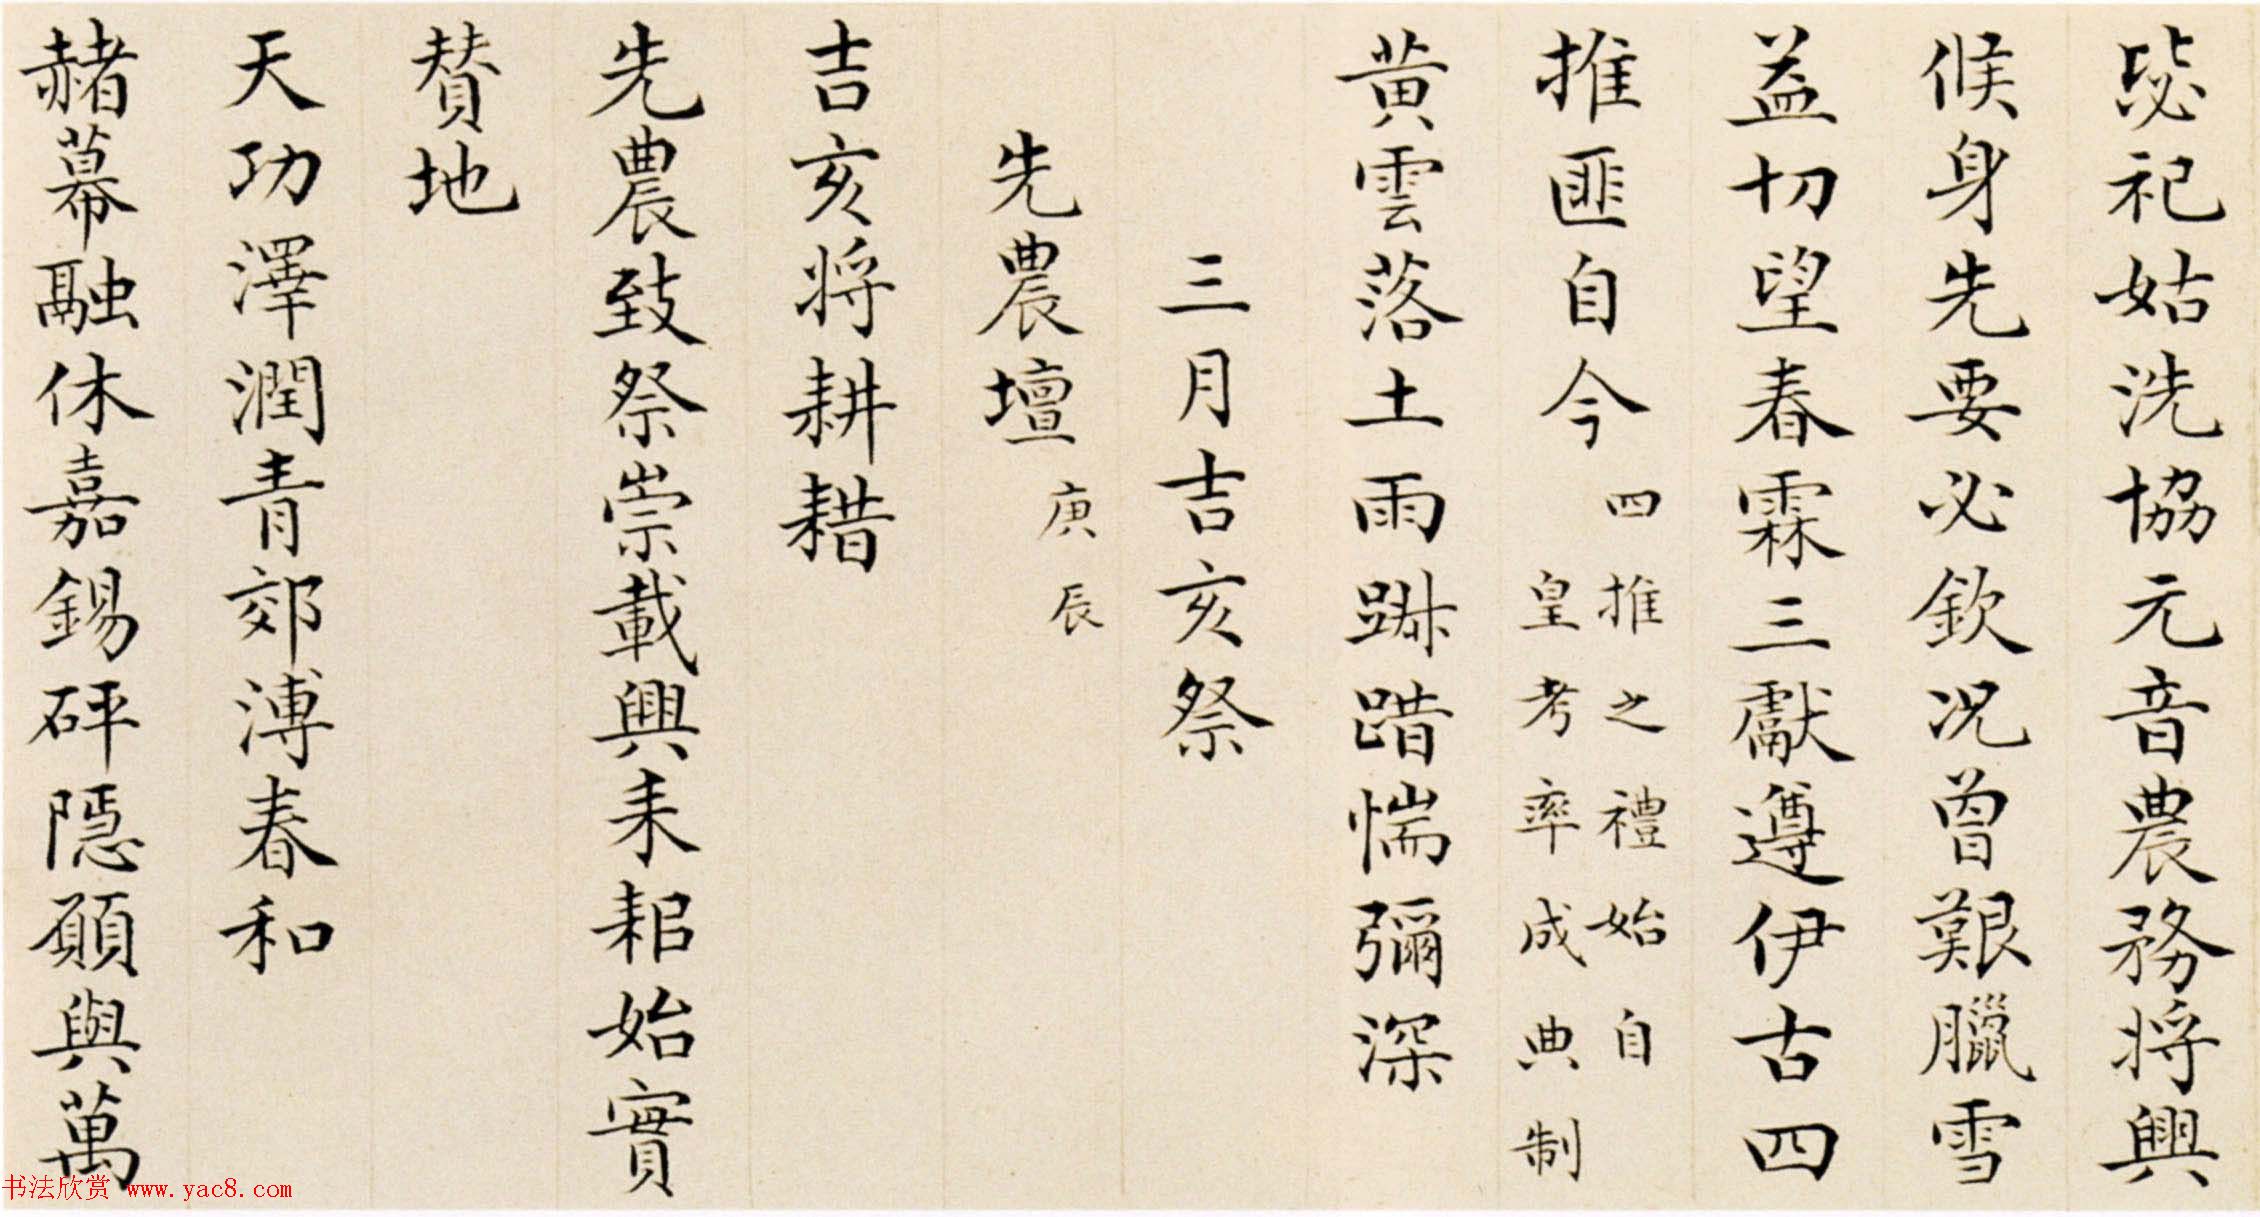 毖祀姑洗協元音農務將興
候身先要必欽况曾艱臘雪
益切望春霖三獻遵伊古四
推匪自今四推之禮始自
皇考率成典制
黃雲落土雨踧踖惴彌深
三月吉亥祭
先農壇庚辰
吉亥将耕耤
先農致祭崇載興耒耜始實
賛地
天功澤潤青郊溥春和
赭幕融休嘉錫砰隱願與萬
书法欣赏 www.yac8.com